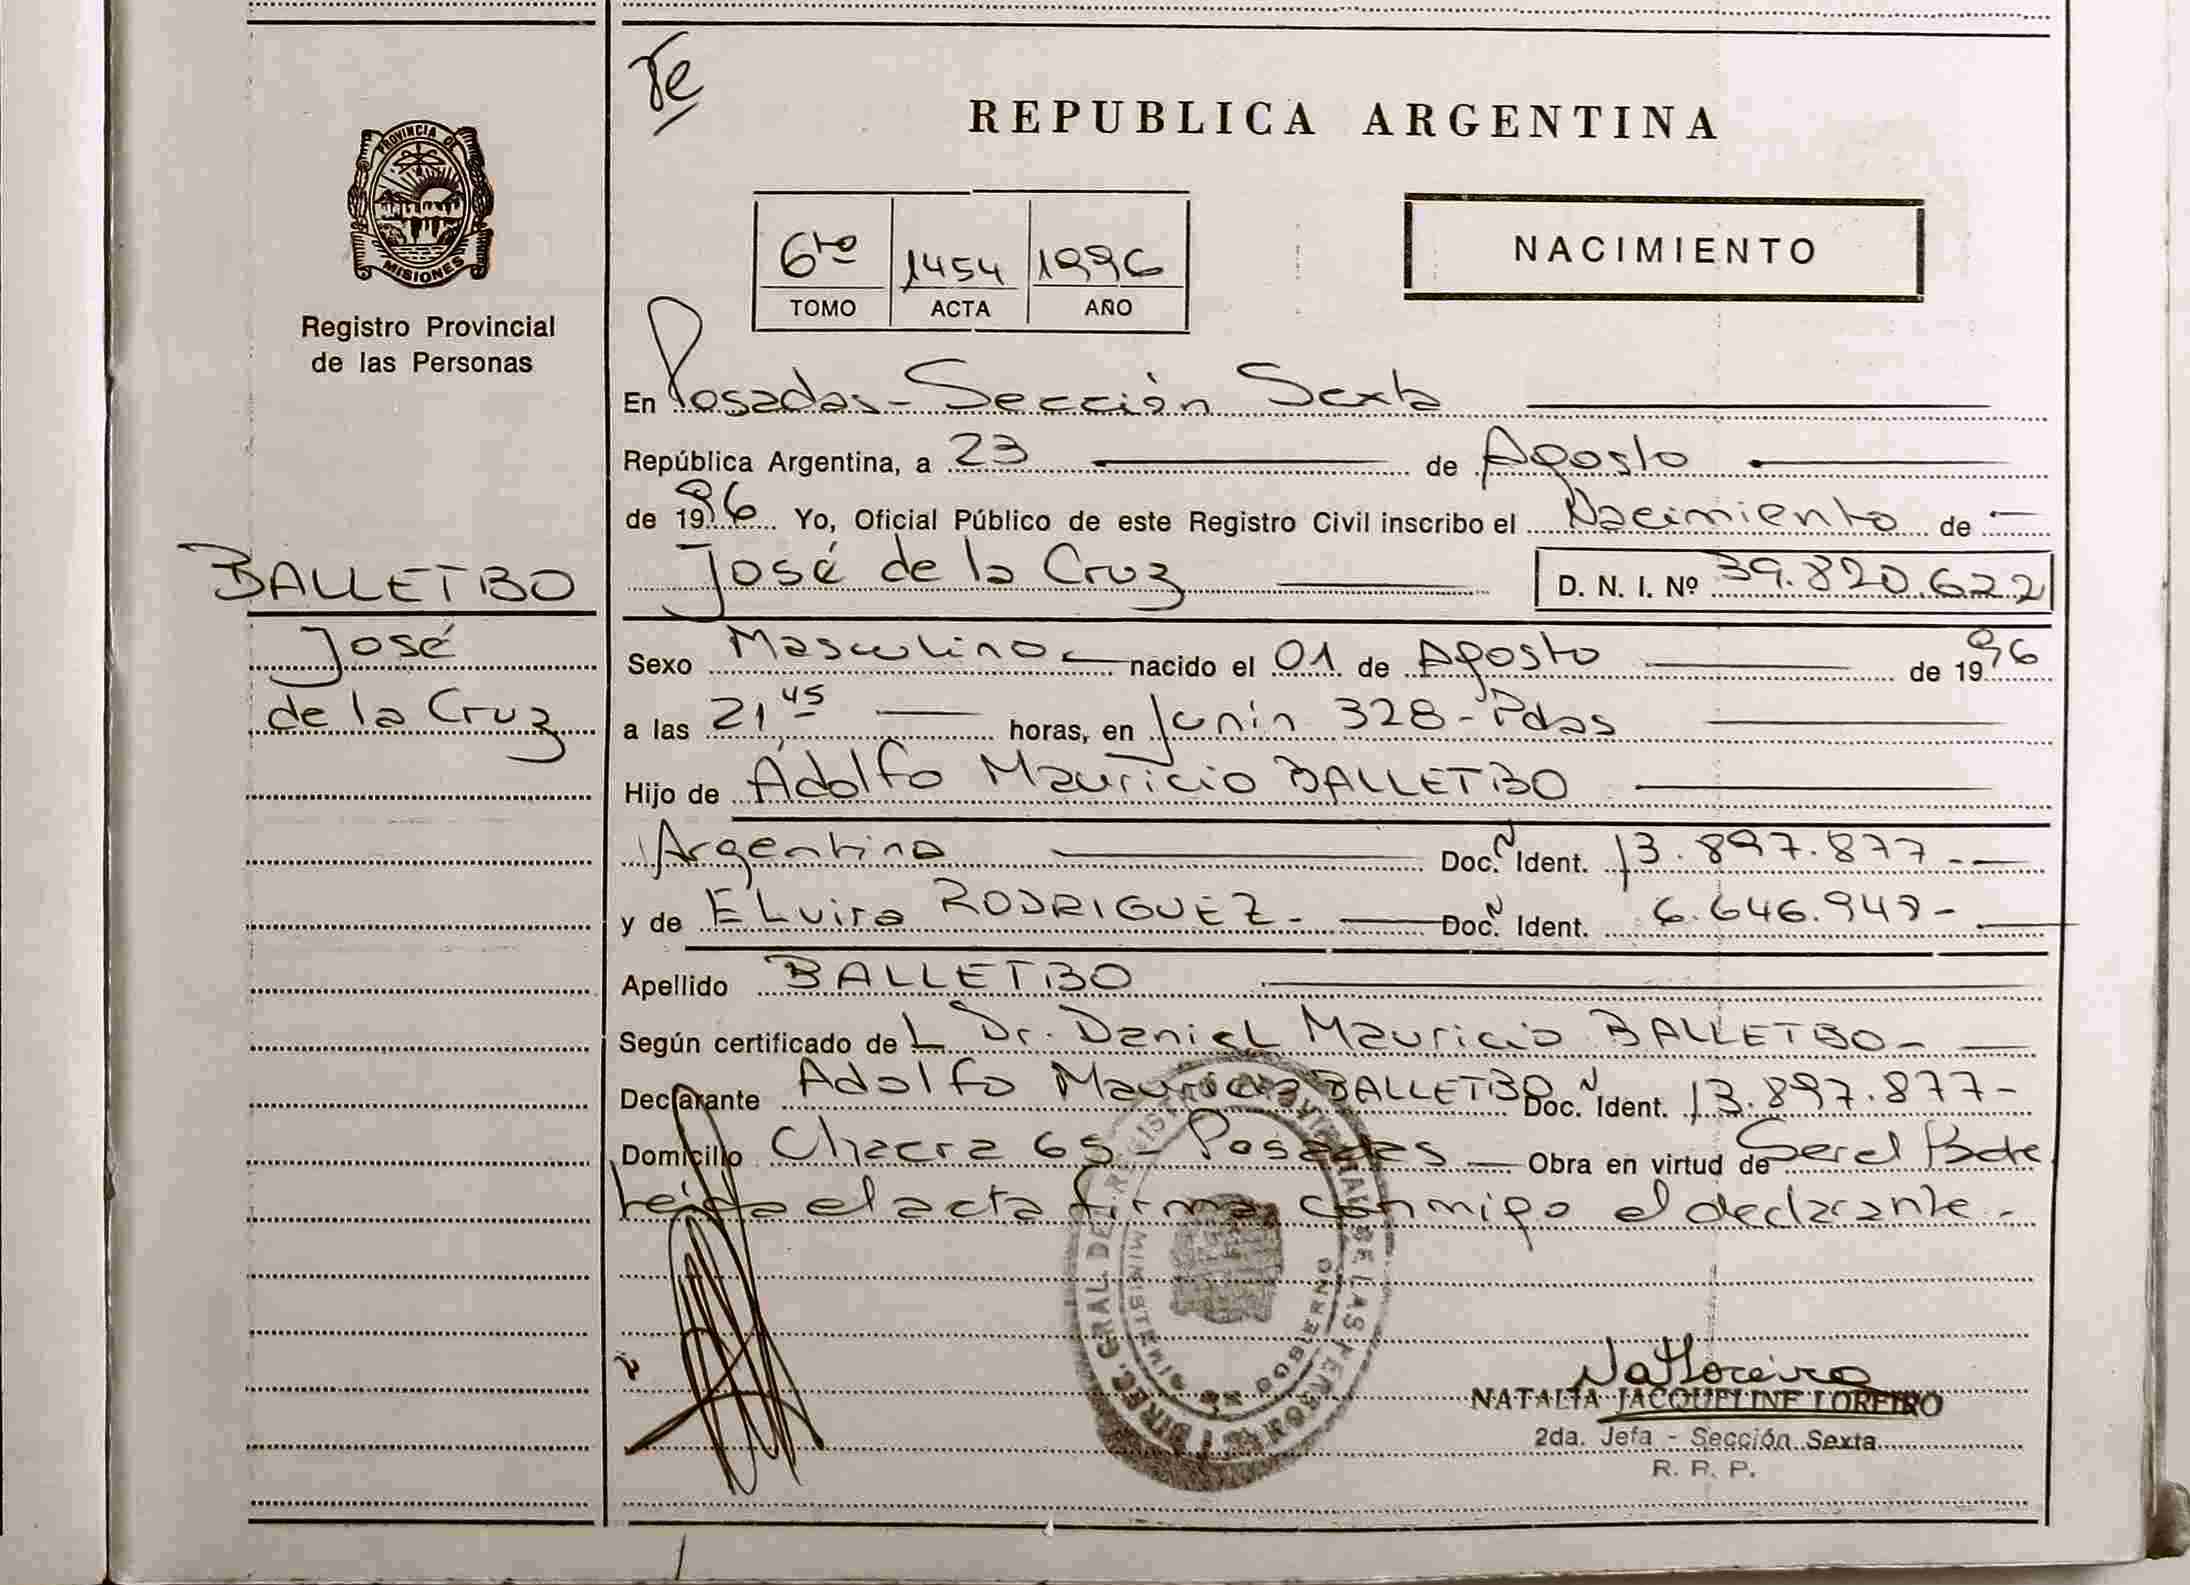 PROVINCIA DE
MISIONES
Registro Provincial
de las Personas
BALLETBO
José
de la Cruz
REPUBLICA ARGENTINA
6to 1454 1996
TOMO ACTA AÑO
NACIMIENTO
En Posadas - Sección Sexta
República Argentina, a 23 de Agosto
de 1996 Yo, Oficial Público de este Registro Civil inscribo el Nacimiento de
José de la Cruz D. N. I. Nº 39.820.622
Sexo Masculino nacido el 01 de Agosto de 1996
a las 21 45 horas, en Junin 328 - Pdas
Hijo de Adolfo Mauricio BALLETBO
Argentino Doc. N Ident. 13.897.877 -
y de ELvira RODRIGUEZ - Doc. N Ident. 6.646.949 -
Apellido BALLETBO
Según certificado de L Dr. DanieL Mauricio BALLETBO -
Declarante Adolfo Mauricio BALLETBO Doc. N Ident. 13.897.877 -
Domicilio Chacra 65 - Posadas - Obra en virtud de Ser el Padre
Leída el acta firma conmigo el declarante -
DIREC. GRAL. DE REGIS PROVINCIAL DE LAS PERSONAS
MINISTERIO DE GOBIERNO
NATALIA JACQUELINE LOREIRO
2da. Jefa - Sección Sexta
R. P. P.